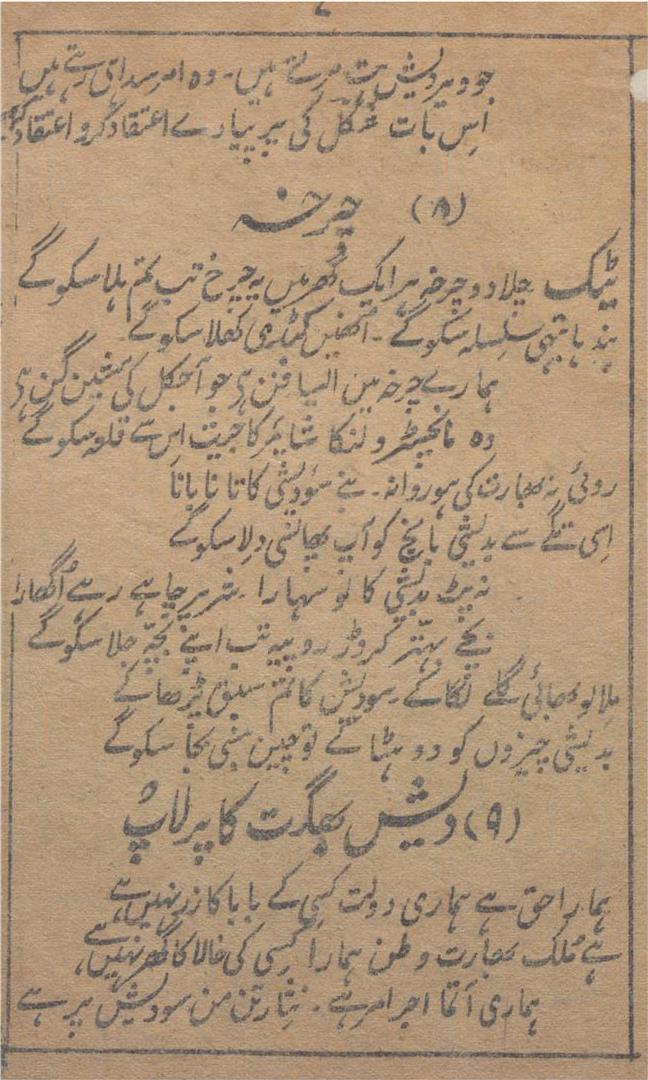 جو ویر دیش ہت مرتے ہیں۔ وہ امر سدا ہی رہتے ہیں
اس بات کی پر پیارے اعتقاد کرو اعتقاد
(۸) چرخہ
ٹیک چلا دو چرخہ ہر ایک گھر میں یہ چرخ تب تم ہلا سکو گے
بندھا تبھی سلسلہ سکو گے۔ انھیں کبڈی کھلا سکو گے
ہمارے چرخہ میں ایسا فن ہی جو آجکل کی مشین گن ہی
وہ مانچسٹر و لنکا شایر کا جیت اس سے قلعہ سکو گے
روئی نہ بھارت کی ہو روانہ۔ بنے سودیشی کا تانا بانا
اسی تگے سے بدیشی بانچ کو آپ پھانسی دلا سکو گے
نہ پٹ بدیشی کا لو سہارا۔ شریر چاہے رہے اگھارا
بچے بہتر کروڑ روپیہ تب اپنے بچہ جلا سکو گے
ملا لو بھائی گلے لگا کے۔ سودیش کا تم سبق پڑھا کے
بدیشی چیزوں کو دو ہٹا کے تو چین بنسی بجا سکو گے
(۹) دیش بھگت کا پرلاپ
ہمارا حق ہے ہماری دولت کسی کے بابا کا زر نہیں ہے
ہے ملک بھارت وطن ہمارا کسی کی خالا کا گھر نہیں ہے
ہماری آتما اجر امر ہے۔ نثار تن من سودیش پر ہے